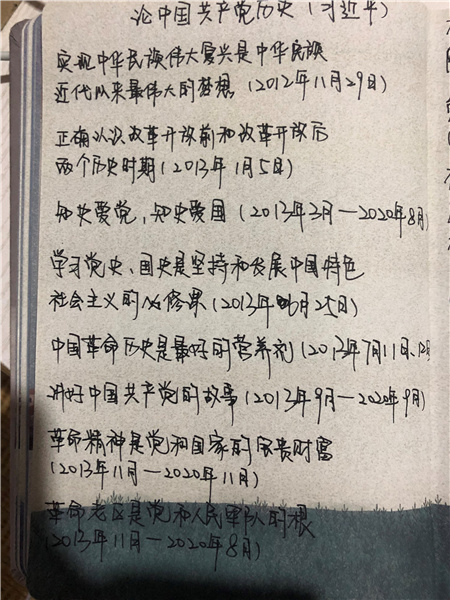 论中国共产党历史（习近平）
实现中华民族伟大复兴是中华民族
近代以来最伟大的梦想（2012年11月29日）
正确认识改革开放前和改革开放后
两个历史时期（2013年1月5日）
知史爱党，知史爱国（2013年3月—2020年8月）
学习党史、国史是坚持和发展中国特色
社会主义的必修课（2013年6月25日）
中国革命历史是最好的营养剂（2013年7月11日、12日
讲好中国共产党的故事（2013年9月—2020年9月）
革命精神是党和国家的宝贵财富
（2013年11月—2020年11月）
革命老区是党和人民军队的根
（2013年11月—2020年8月）